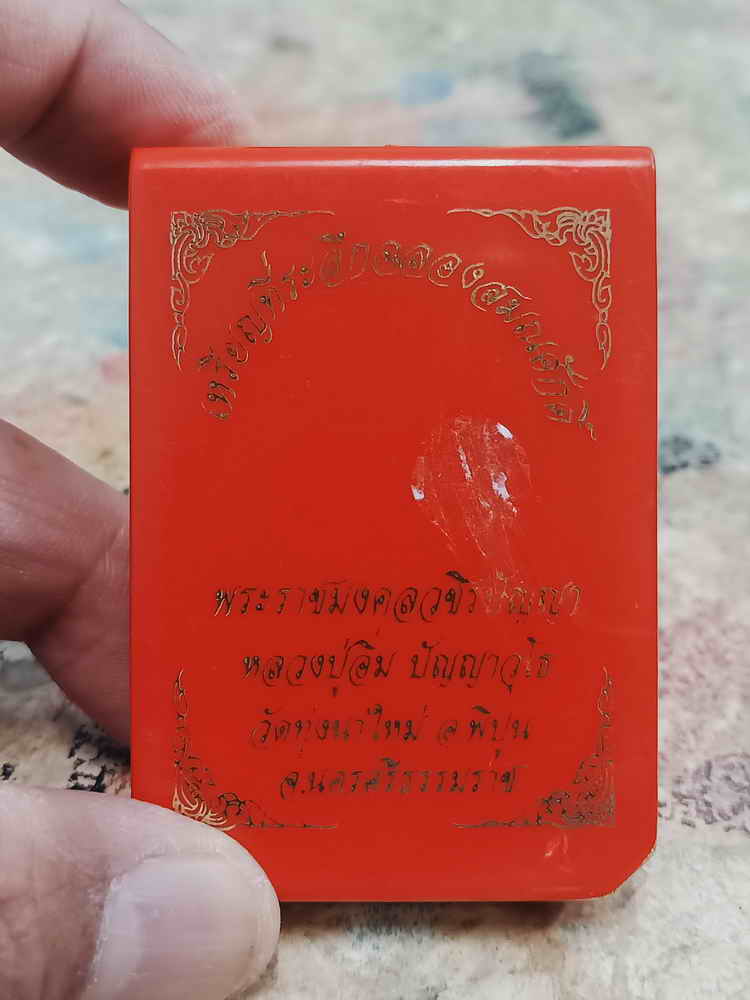 เหรียญที่ระลึกฉลองสมณศักดิ์
พระราชมงคลวชิรปัญญา
หลวงปู่อิ่ม ปัญญาวุโธ
วัดทุ่งนาใหม่ อ.พิปูน
จ.นครศรีธรรมราช